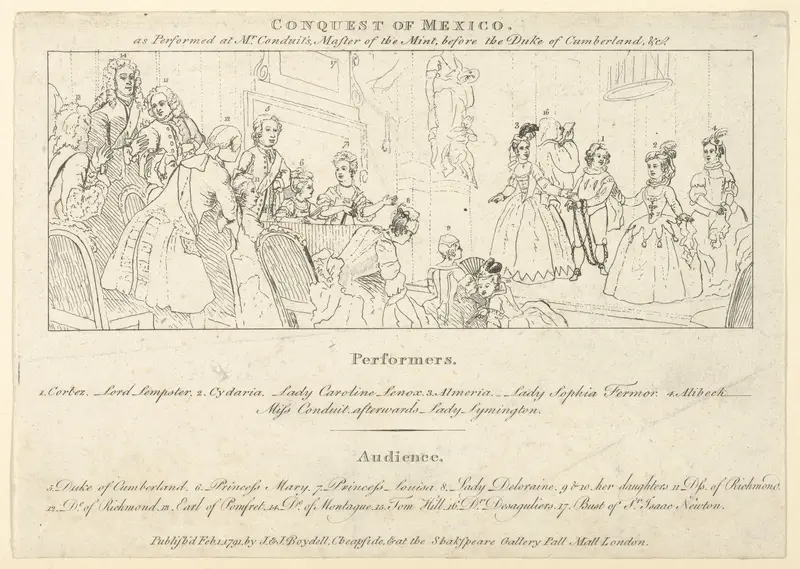 CONQUEST OF MEXICO.
as Performed at Mr. Conduit's, Master of the Mint, before the Duke of Cumberland, &c.
14
13
15
12
5
17
6
7
8
9
3
16
1
2
4
Performers.
1. Cortez. Lord Lempster. 2. Cydaria. Lady Caroline Lenox. 3. Almeria. Lady Sophia Fermor. 4. Alibeck
Miſs Conduit afterwards Lady Lymington.
Audience.
5. Duke of Cumberland. 6. Princeſs Mary. 7. Princeſs Louisa 8. Lady Deloraine. 9 & 10. her daughters 11. Dſs. of Richmond.
12. D. of Richmond. 13. Earl of Pomfret. 14. D. of Montague. 15. Tom Hill. 16. Dr. Desaguliers. 17. Bust of Sr. Isaac Newton.
Publiſh'd Feb. 1. 1791, by J. & J. Boydell, Cheapside, & at the Shakſpeare Gallery Pall Mall London.